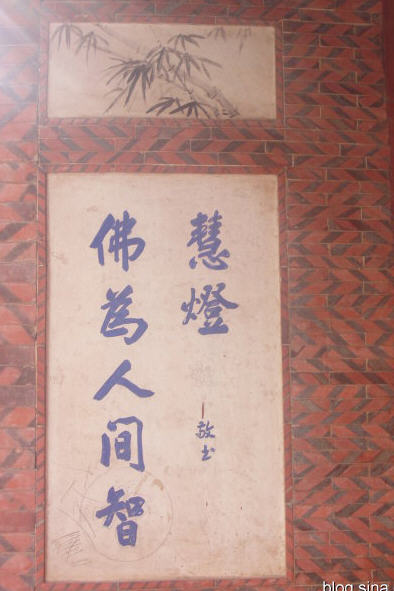 佛為人间智
慧燈
敬书
blog.sina